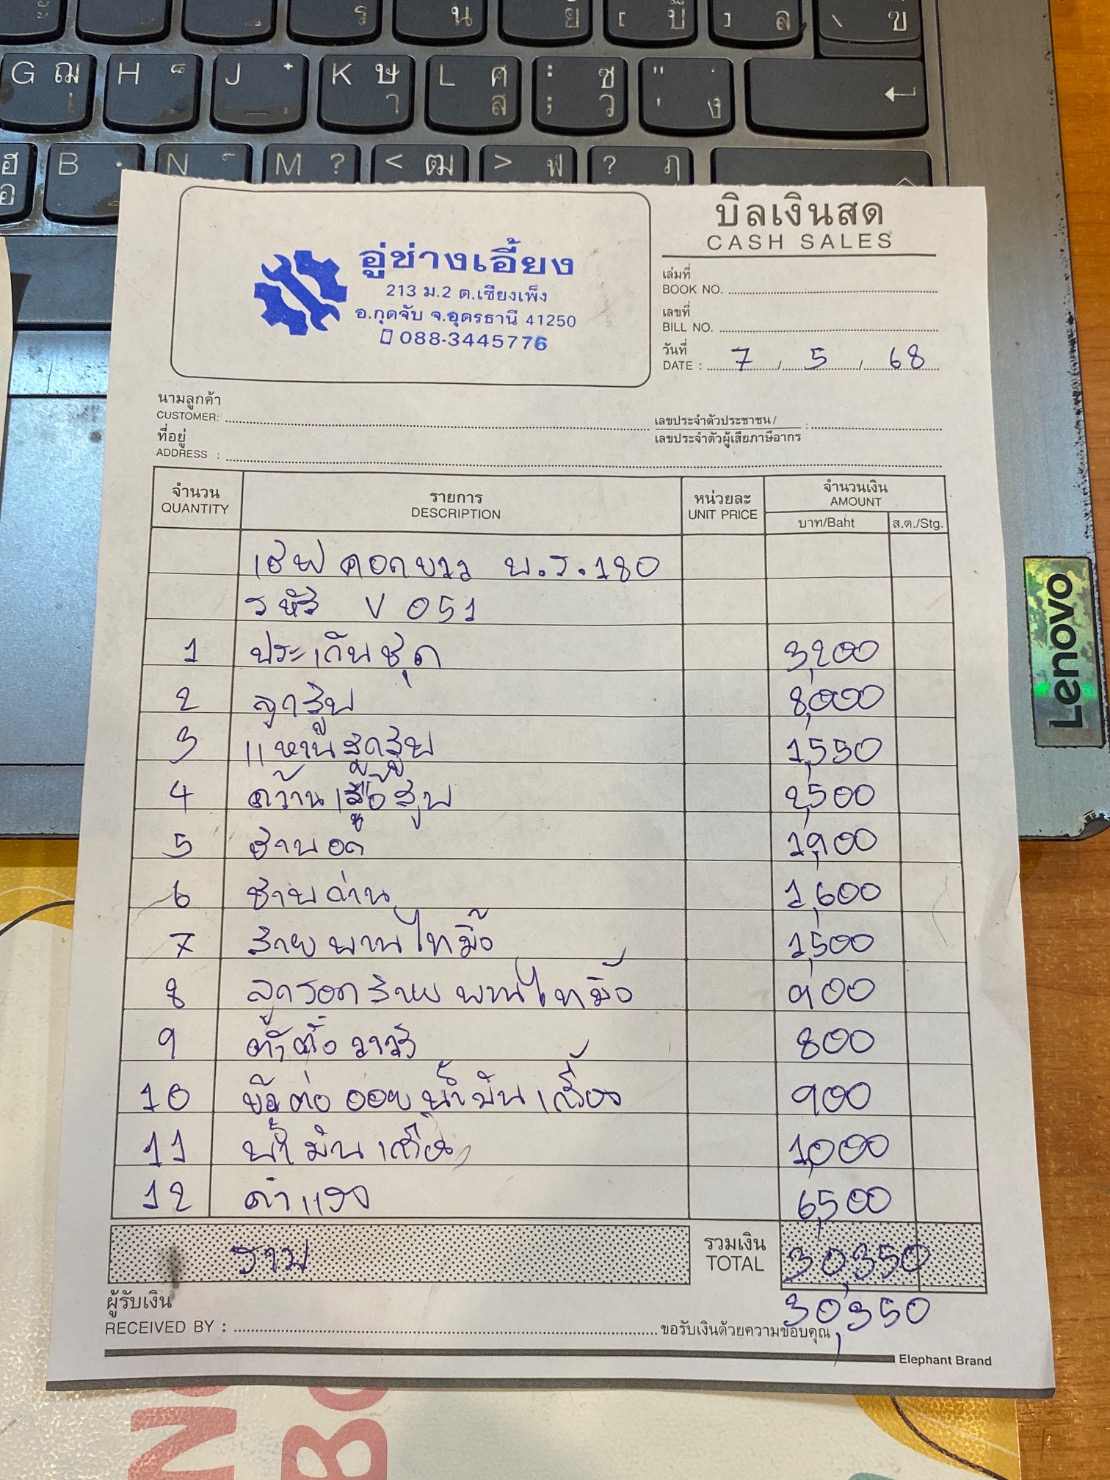 G ฌ H J K ษ า L ศ ส : ; ซ ว " ' . ง
ฮ อ B N M ? < ฒ > ฬ ? ฦ
บิลเงินสด
CASH SALES
อู่ช่างเอี้ยง
213 ม.2 ต.เชียงเพ็ง
อ.กุดจับ จ.อุดรธานี 41250
088-3445776
เล่มที่
BOOK NO.
เลขที่
BILL NO.
วันที่
DATE : 7 / 5 / 68
นามลูกค้า
CUSTOMER:
เลขประจำตัวประชาชน/
เลขประจำตัวผู้เสียภาษีอากร :
ที่อยู่
ADDRESS :
จำนวน รายการ หน่วยละ จำนวนเงิน
QUANTITY DESCRIPTION UNIT PRICE AMOUNT
บาท/Baht ส.ต./Stg.
คอกขาว พ.ร.180
รหัส V 051
1 ประเก็นชุด 3,200
2 ลูกสูบ 8,000
3 แหวนลูกสูบ 1,550
4 คว้านเสื้อสูบ 2,500
5 ชาพอก 1,900
6 ชาพก้าน 1,600
7 สายพานไทมิ่ง 1,500
8 ลูกรอกสายพานไทมิ่ง 900
9 ค่าตั้งวาว 800
10 ออยน้ำมันเครื่อง 900
11 น้ำมันเครื่อง 1,000
12 ค่าแรง 6,500
รวม รวมเงิน 30,350
TOTAL
30,350
ผู้รับเงิน
RECEIVED BY : ขอรับเงินด้วยความขอบคุณ
Elephant Brand
Lenovo